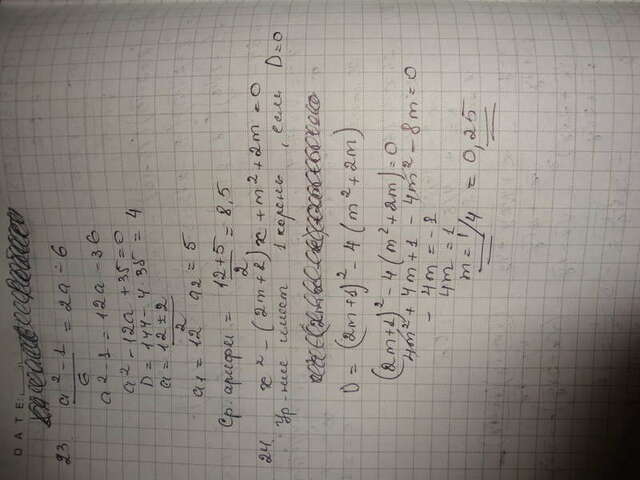 DATE:
23
a² - 1 / 6 = 2a - 6
a² - 1 = 12a - 36
a² - 12a + 35 = 0
D = 144 - 4 35 = 4
a = 12 ± 2 / 2
a1 = 12 a2 = 5
Ср. арифм = 12 + 5 / 2 = 8,5
24 x² - (2m + 1)x + m² + 2m = 0
Ур-ние имеет 1 корень, если D = 0
D = (2m + 1)² - 4 (m² + 2m)
(2m + 1)² - 4 (m² + 2m) = 0
4m² + 4m + 1 - 4m² - 8m = 0
- 4m = - 1
4m = 1
m = 1/4 = 0,25